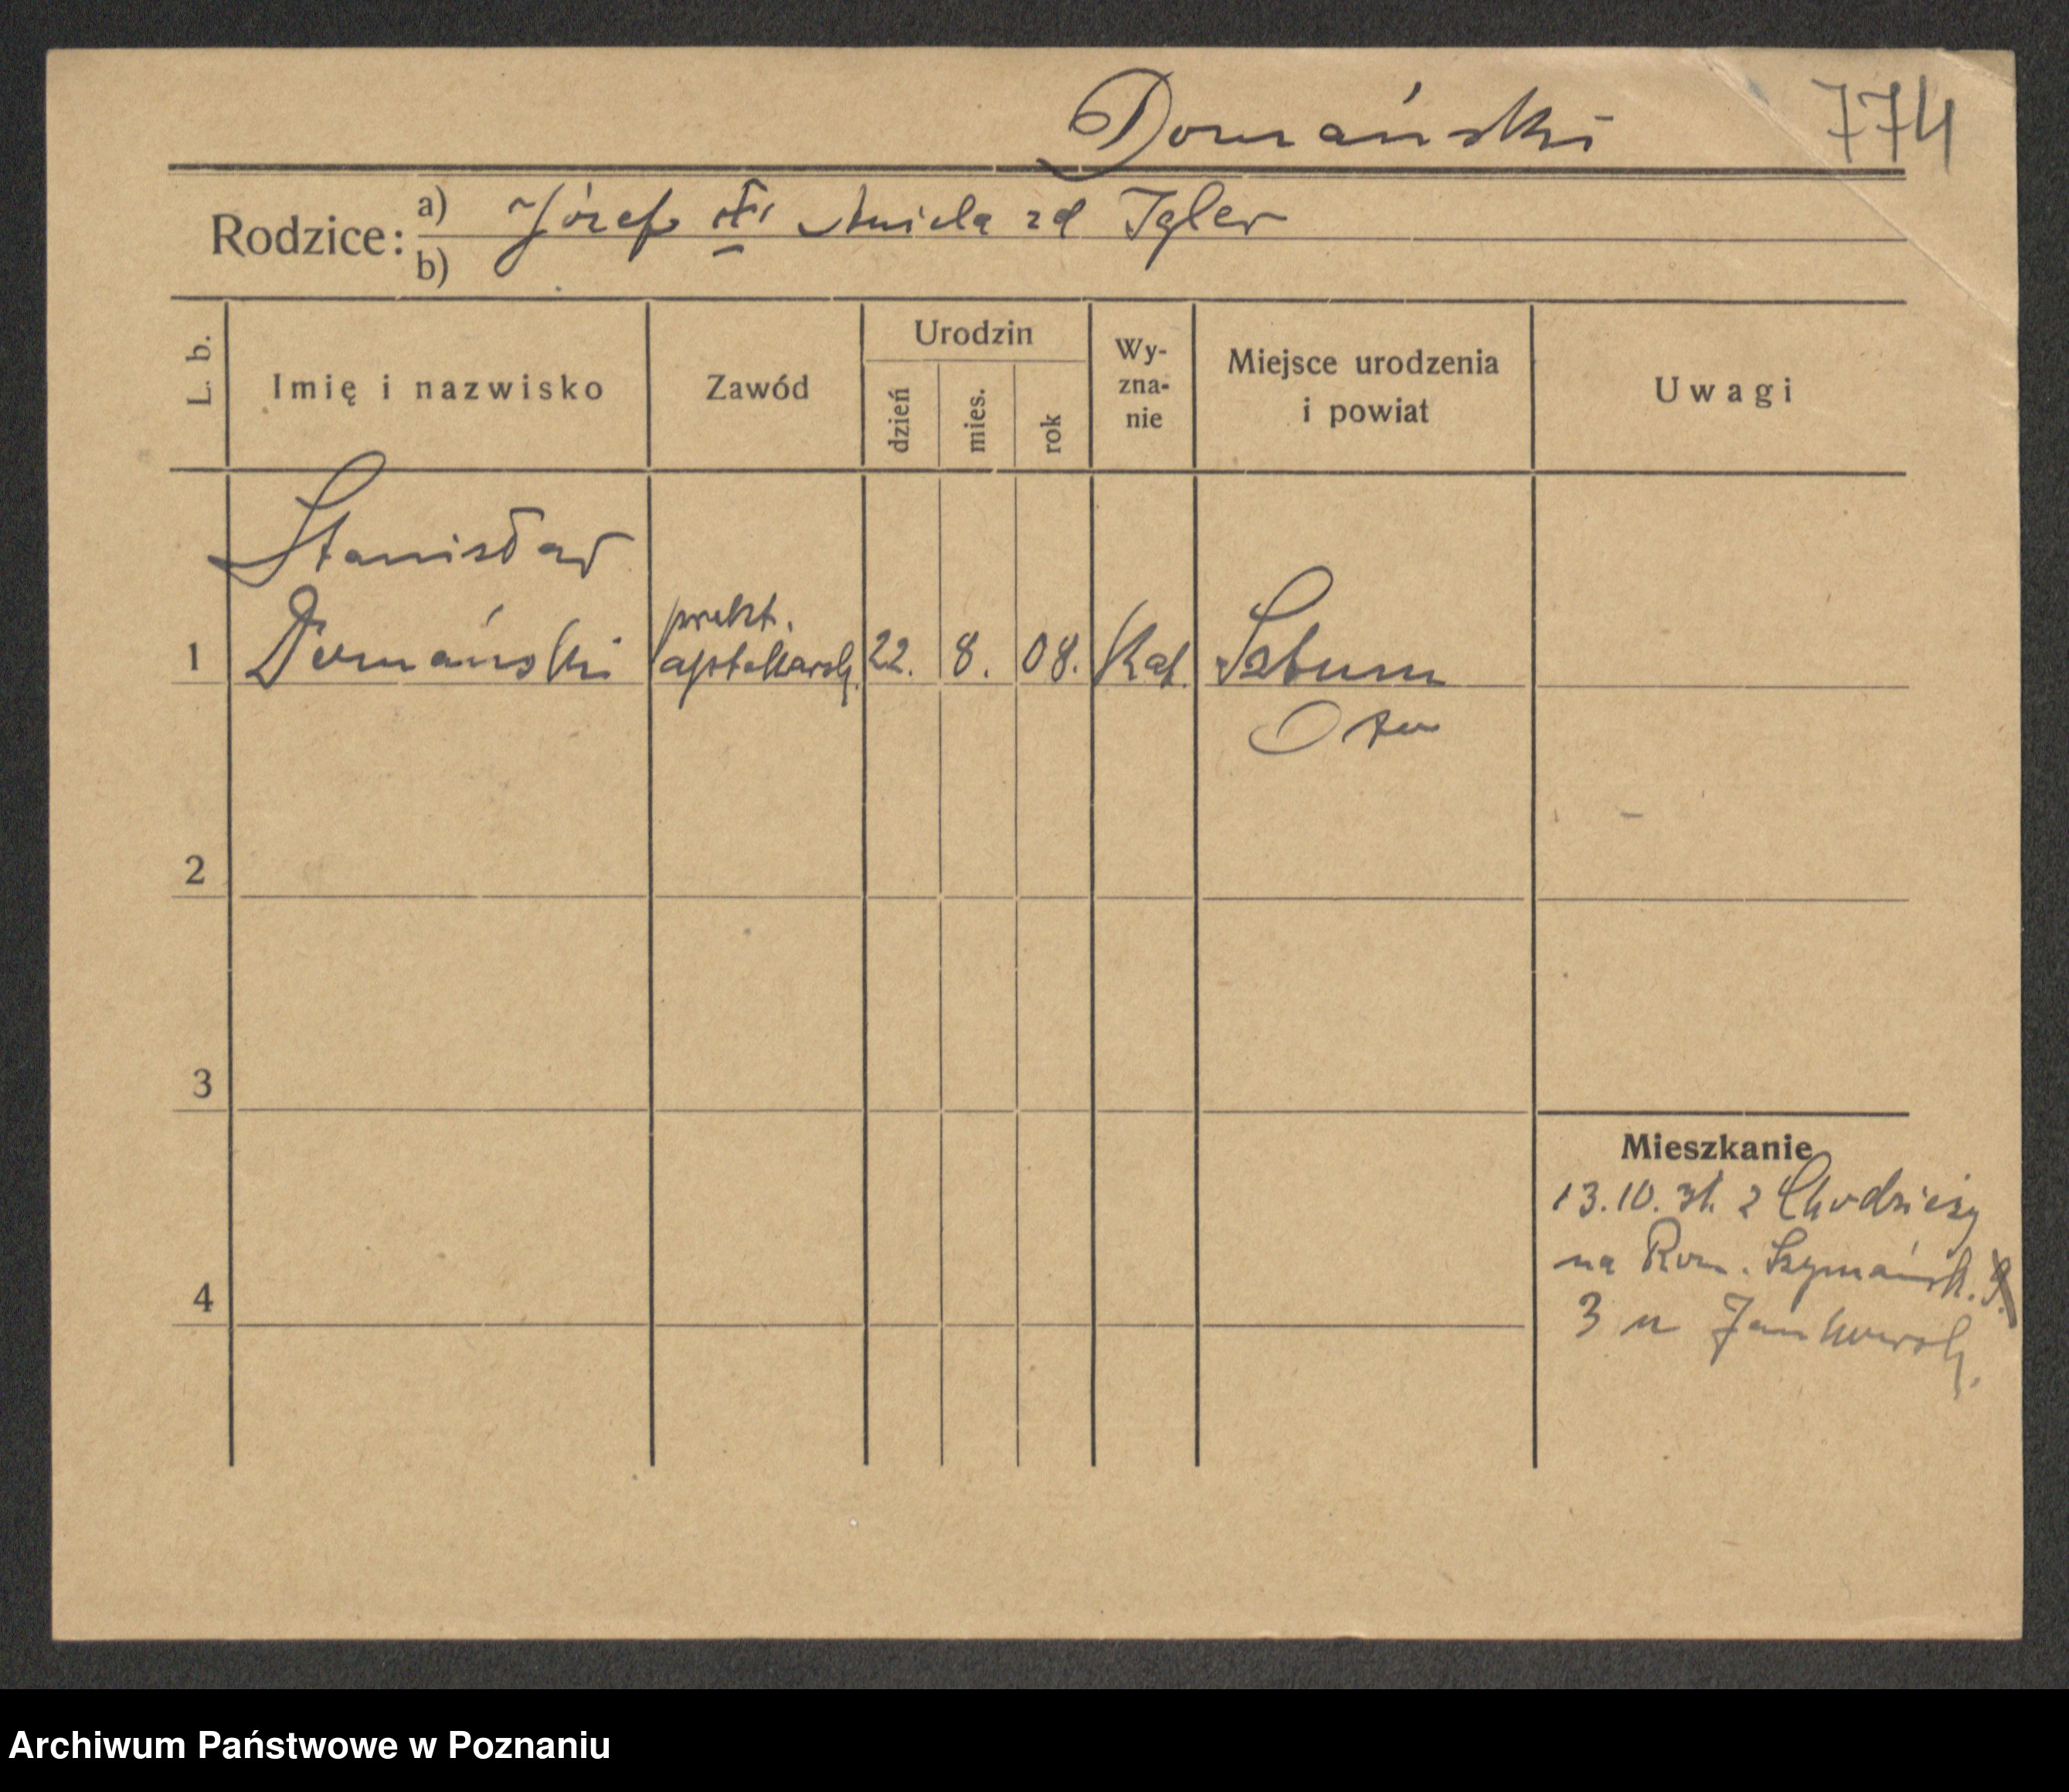 Domański 774
Rodzice: a) Józef Aniela zd Igler
b)
L. b. Imię i nazwisko Zawód Urodzin dzień mies. rok Wy-zna-nie Miejsce urodzenia i powiat Uwagi
Stanisław
prakt.
1 Domański aptekarsk. 22. 8. 08. Kat. Sztum
2
3
Mieszkanie
13.10. 31. z Chodzieży
na Rom. Szymańsk.
4
3 u Jankowsk.
Archiwum Państwowe w Poznaniu